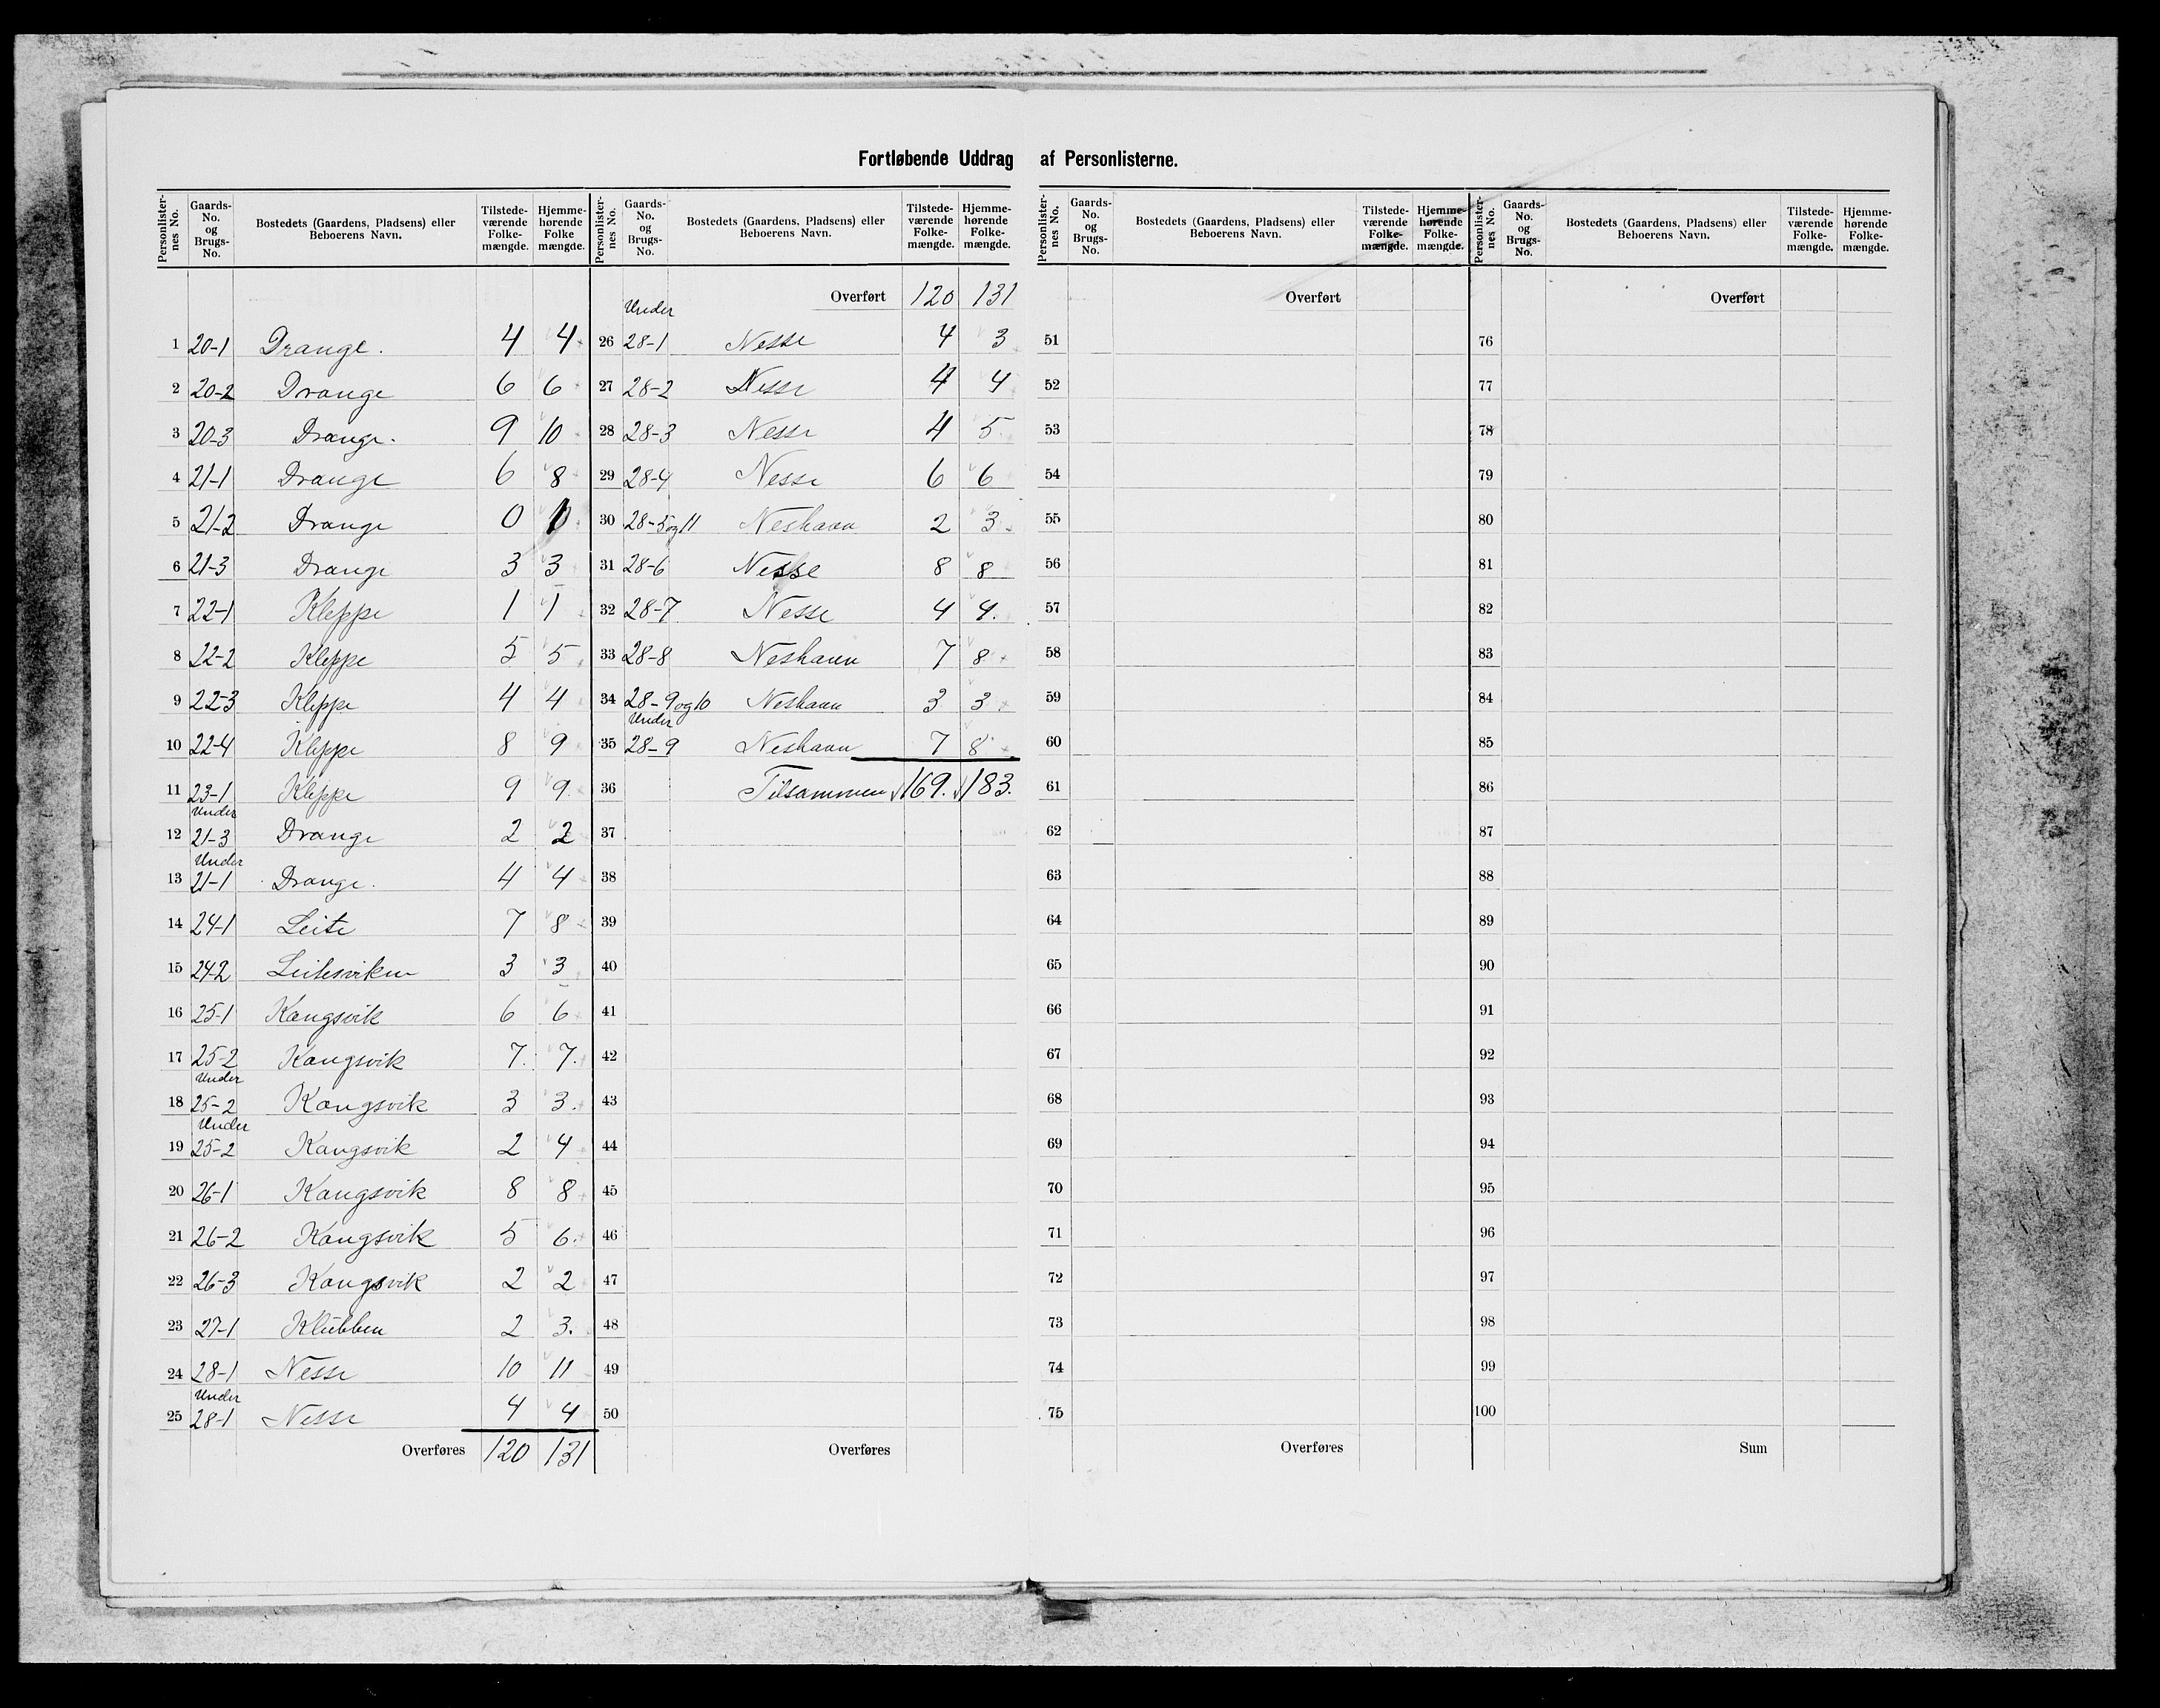 Fortløbende Uddrag af Personlisterne.
Personlister-nes No. Gaards-No. og Brugs-No. Bostedets (Gaardens, Pladsens) eller Beboerens Navn. Tilstede-værende Folke-mængde. Hjemme-hørende Folke mængde.
1 20-1 Drange. 4 4
2 20-2 Drange 6 6
3 20-3 Drange. 9 10
4 21-1 Drange 6 8
5 21-2 Drange 0
6 21-3 Drange 3 3
7 22-1 Kleppe 1 1
8 22-2 Kleppe 5 5
9 22-3 Kleppe 4 4
10 22-4 Kleppe 8 9
11 23-1 Kleppe 9 9
Under
12 21-3 Drange 2 2
Under
13 21-1 Drange. 4 4
14 24-1 Leite 7 8
15 24-2 Leitesviken 3 3
16 25-1 Kangsvik 6 6
17 25-2 Kangsvik 7. 7.
Under
18 25-2 Kangsvik 3 3.
Under
19 25-2 Kangsvik 2 4
20 26-1 Kangsvik 8 8
21 26-2 Kangsvik 5 6.
22 26-3 Kangsvik 2 2
23 27-1 Klubben 2 3.
24 28-1 Nesse 10 11
Under
25 28-1 Nesse 4 4
Overføres 120 131
Personlister-nes No. Gaards-No. og Brugs-No. Bostedets (Gaardens, Pladsens) eller Beboerens Navn. Tilstede-værende Folke-mængde. Hjemme-hørende Folke-mængde.
Overført 120 131
Under
26 28-1 Nesse 4 3
27 28-2 Nesse 4 4
28 28-3 Nesse 4 5
29 28-4 Nesse 6 6
30 28-5 og 11 Neshavn 2 3
31 28-6 Nesse 8 8
32 28-7 Nesse 4 4.
33 28-8 Neshavn 7 8
34 28-9 og 10 Neshavn 3 3
Under
35 28-9 Neshavn 7 8
36 Tilsammen 169. 183.
37
38
39
40
41
42
43
44
45
46
47
48
49
50
Overføres
Personlister-nes No. Gaards-No. og Brugs-No. Bostedets (Gaardens, Pladsens) eller Beboerens Navn. Tilstede-værende Folke-mængde. Hjemme-hørende Folke-mængde.
Overført
51
52
53
54
55
56
57
58
59
60
61
62
63
64
65
66
67
68
69
70
71
72
73
74
75
Overføres
Personlister-nes No. Gaards-No. og Brugs-No. Bostedets (Gaardens, Pladsens) eller Beboerens Navn. Tilstede-værende Folke-mængde. Hjemme-hørende Folke-mængde.
Overført
76
77
78
79
80
81
82
83
84
85
86
87
88
89
90
91
92
93
94
95
96
97
98
99
100
Sum